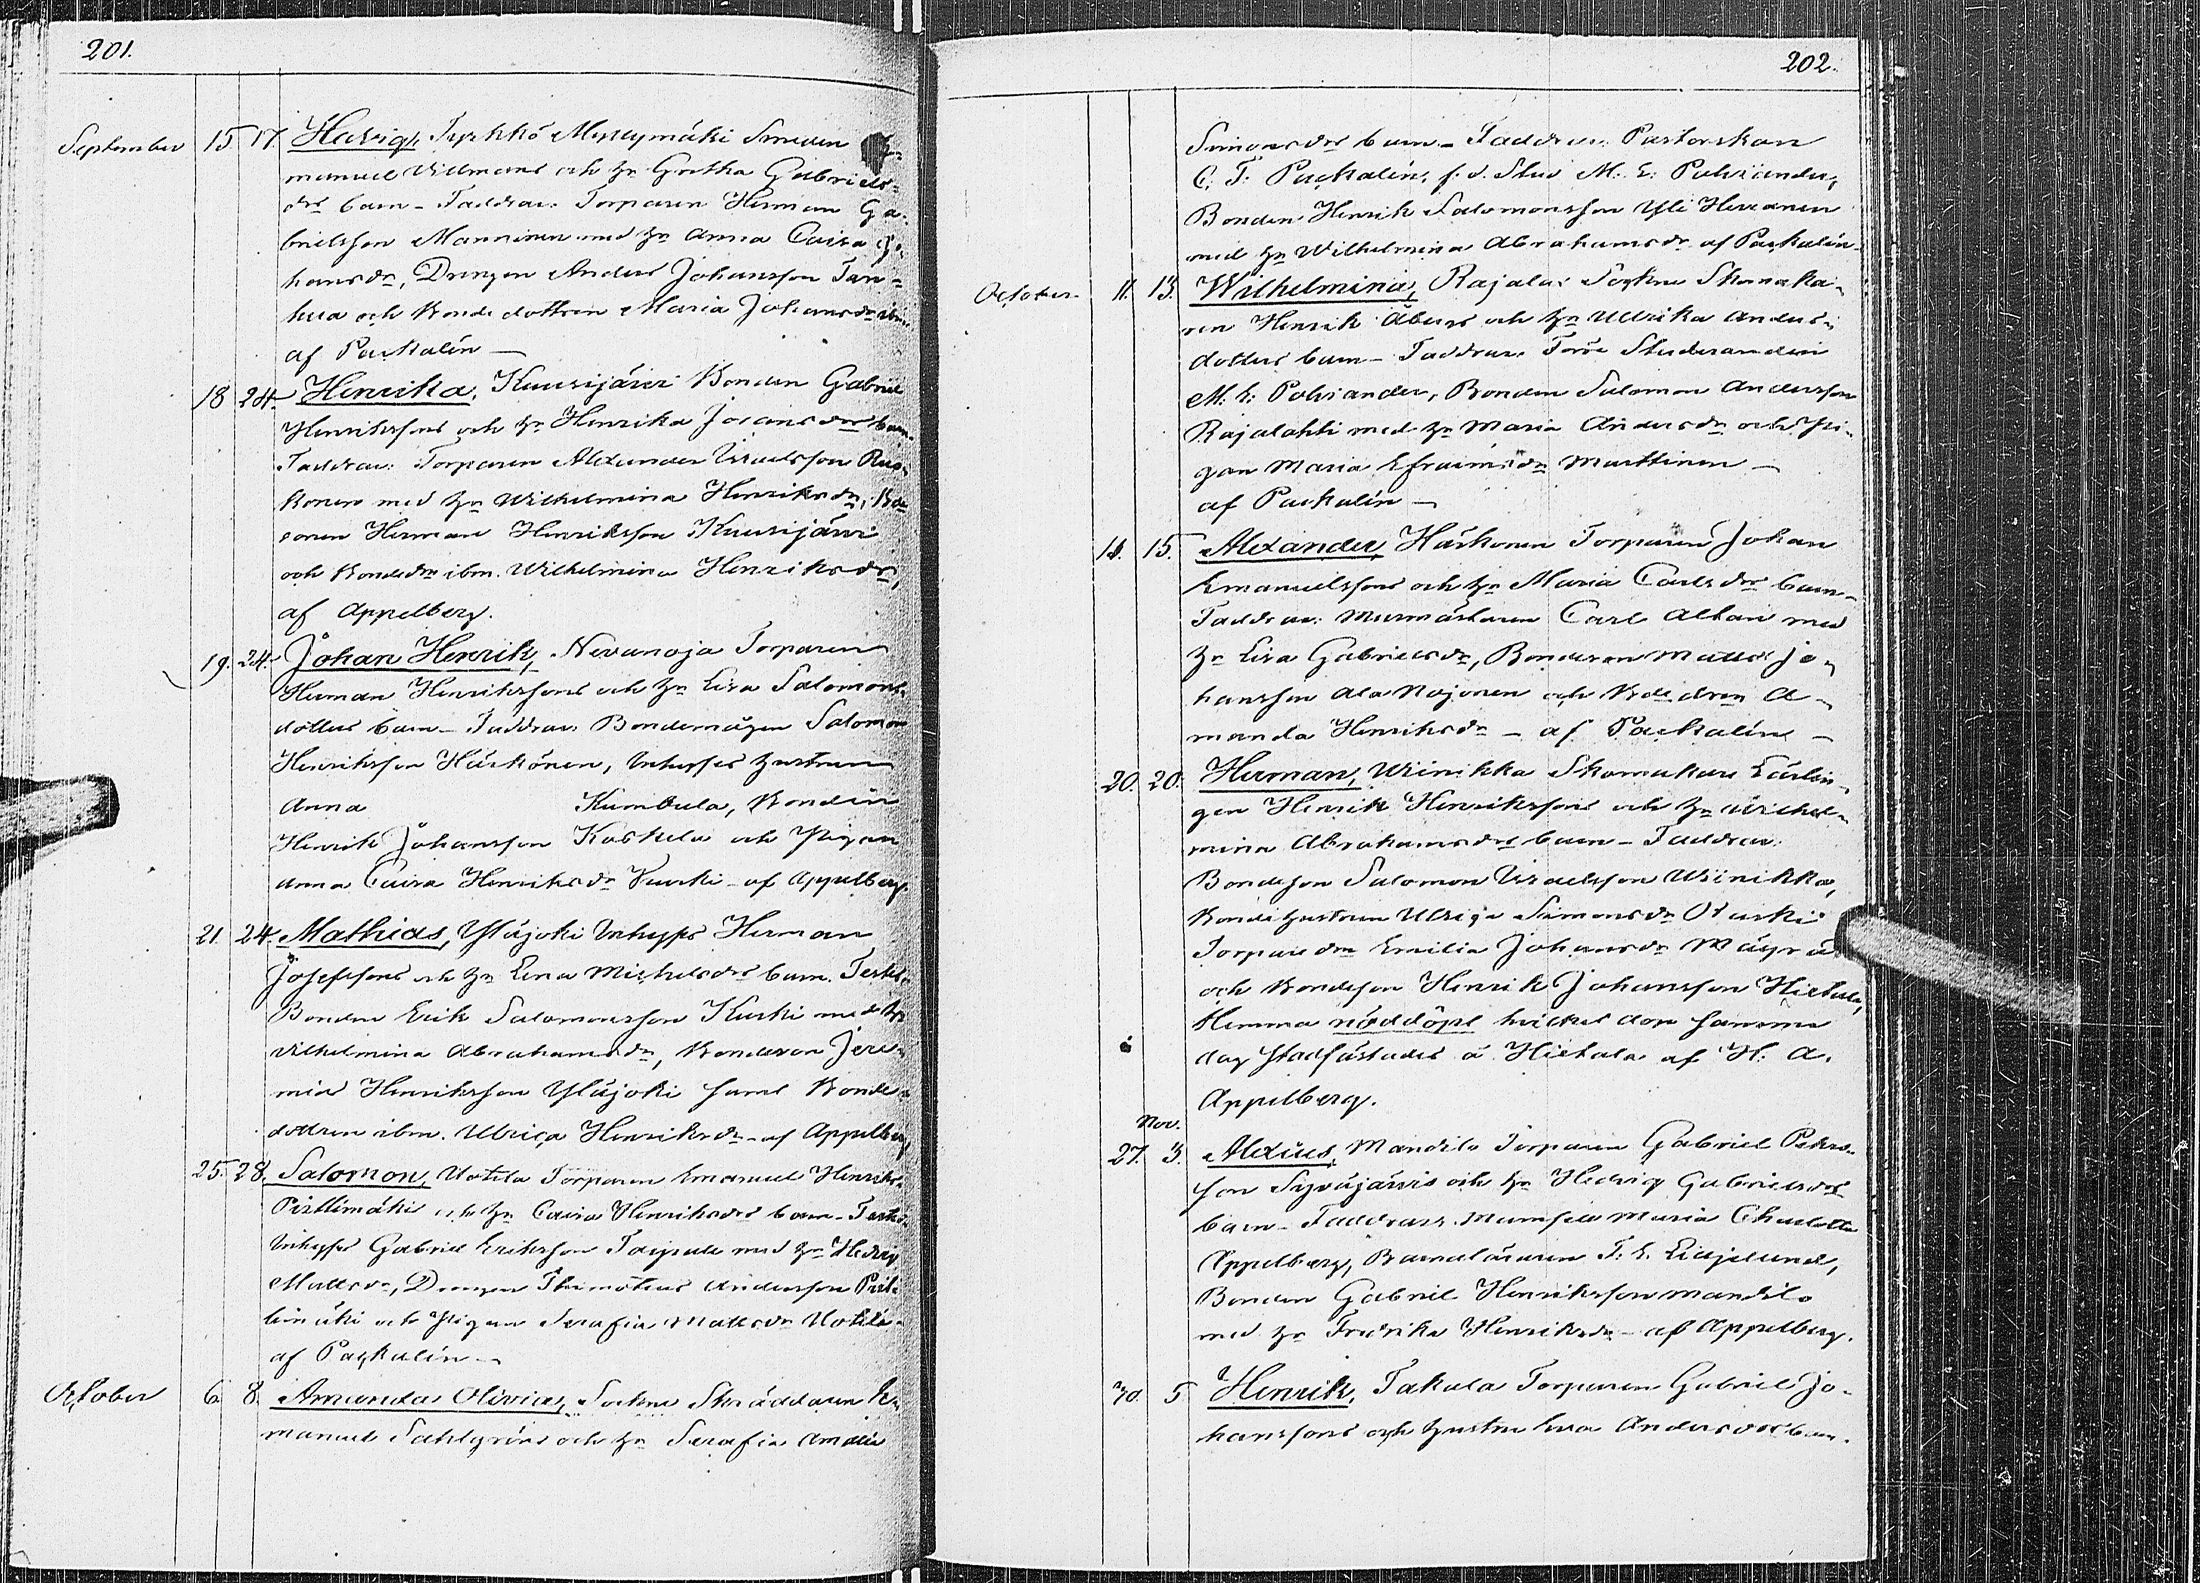 201.
September 15 17. Hedvig, Tyrkkö Myllymäki Smeden E-
manuel Villmans och hr Gretha Gabriels-
drs barn - Faddrar: Torparen Herman Ga-
brielsson Manninen med hr Anna Caisa Jo-
hansdr, Drengen Anders Johansson Tan-
hua och Bonde dottren Maria Johansdr ibm
af Packalén -
18 24. Henrika, Kuusijärvi Bonden Gabriel
Henrikssons och hr Henrika Jacobsdrs barn.
Faddrar: Torparen Alexander Israelsson
konen med hr Wilhelmina Henriksdr, Bon-
sonen Herman Henriksson Kuusijärvi
och Bondedrn ibm. Wilhelmina Henriksdr,
af Appelberg.
19. 24. Johan Henrik, Nevanoja Torparen
Herman Henrikssons och hr Lisa Salomons-
dotters barn - Faddrar: Bondemågen Salomon
Henriksson Härkönen, Inhyses hustrun
Anna Kumbula, Bonden
Henrik Johansson Koskela och Pigan
Anna Caisa Henriksdr Vuorki - af Appelberg.
21. 24. Mathias, Yläjoki Inhyses Herman
Josefssons och hr Lena Michelsdrs barn. Test:
Bonden Erik Salomonsson Kurki med hr
Vilhelmina Abrahamsdr, Bondeson Jere-
mias Henriksson Yläjoki samt Bonde-
dottren ibm. Ulrica Henriksdr - af Appelberg
25. 28. Salomon, Uotila Torparen Emanuel Henriks.
Pirttimäkis och hr Caisa Henriksdrs barn - Test:
Inhyses Gabriel Eriksson Taipale med hr Hedvig
Mattsdr, Drengen Thimoteus Andersson Pirt-
timäki och Pigan Serafia Mattsdr Uotila -
af Packalén -
October 6 8. Amanda Olivia, Sockne Skräddaren E-
manuel Sahlgréns och hr Serafia Amalia
202.
Simonsdrs barn - Faddrar: Pastorskan
C. F. Packalén, f. d. Stud M. E. Polviander,
Bonden Henrik Salomonsson Yli Hirvonen
med hr Wilhelmina Abrahamsdr af Packalén -
October 11. 13. Wilhelmina, Rajala: Sockne Skomaka-
ren Henrik Åbergs och hr Ullrika Anders-
dotters barn - Faddrar: Förre Studeranden
M. E. Polviander, Bonden Salomon Andersson
Rajalahti med hr Maria Andersdr och Pi-
gan Maria Efraimsdr Marttinen -
af Packalén -
14. 15. Alexander, Härkönen Torparen Johan
Emanuelssons och hr Maria Carlsdrs barn -
Faddrar: Murmästaren Carl Altan med
hr Lisa Gabrielsdr, Bondeson Matts Jo-
hansson Ala Nojonen och Bde dren A-
manda Henriksdr - af Packalén -
20. 20. Herman, Wiinikka Skomakare Lärlin-
gen Henrik Henrikssons och hr Wilhel-
mina Abrahamsdrs barn - Faddrar:
Bondeson Salomon Israelsson Wiinikka,
Bondehustrun Ulrica Simonsdr Oturki
Torpare drn Emilia Johansdr Mäyrä
och Bondeson Henrik Johansson Hietala,
Hemma nöddöpt hvilket dop samma
dag stadfästades å Hietala af H. A.
Appelberg.
Nov.
27. 3. Alexius, Mandila Torparen Gabriel Peters-
son Syväjärvis och hr Hedvig Gabrielsdrs
barn - Faddrar: Mamsell Maria Charlotta
Appelberg, Barnaläraren F. E. Liljelund,
Bonden Gabriel Henriksson Mandila
med hr Fredrika Henriksdr - af Appelberg.
30. 5 Henrik, Takala Torparen Gabriel Jo-
hanssons och hustru Lisa Andersdrs barn.